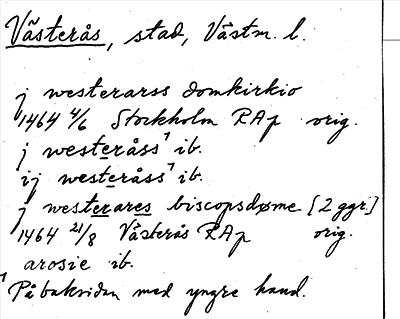 Västerås, stad, Västm. l.
j westerarss domkirkio
1464 4/6 Stockholm RAp orig.
j westeråss¹ ib.
ij westeråss¹ ib.
j westerares biscopsdøme [2 ggr.]
1464 21/8 Västerås RAp orig.
arosie ib.
¹ På baksidan med yngre hand.